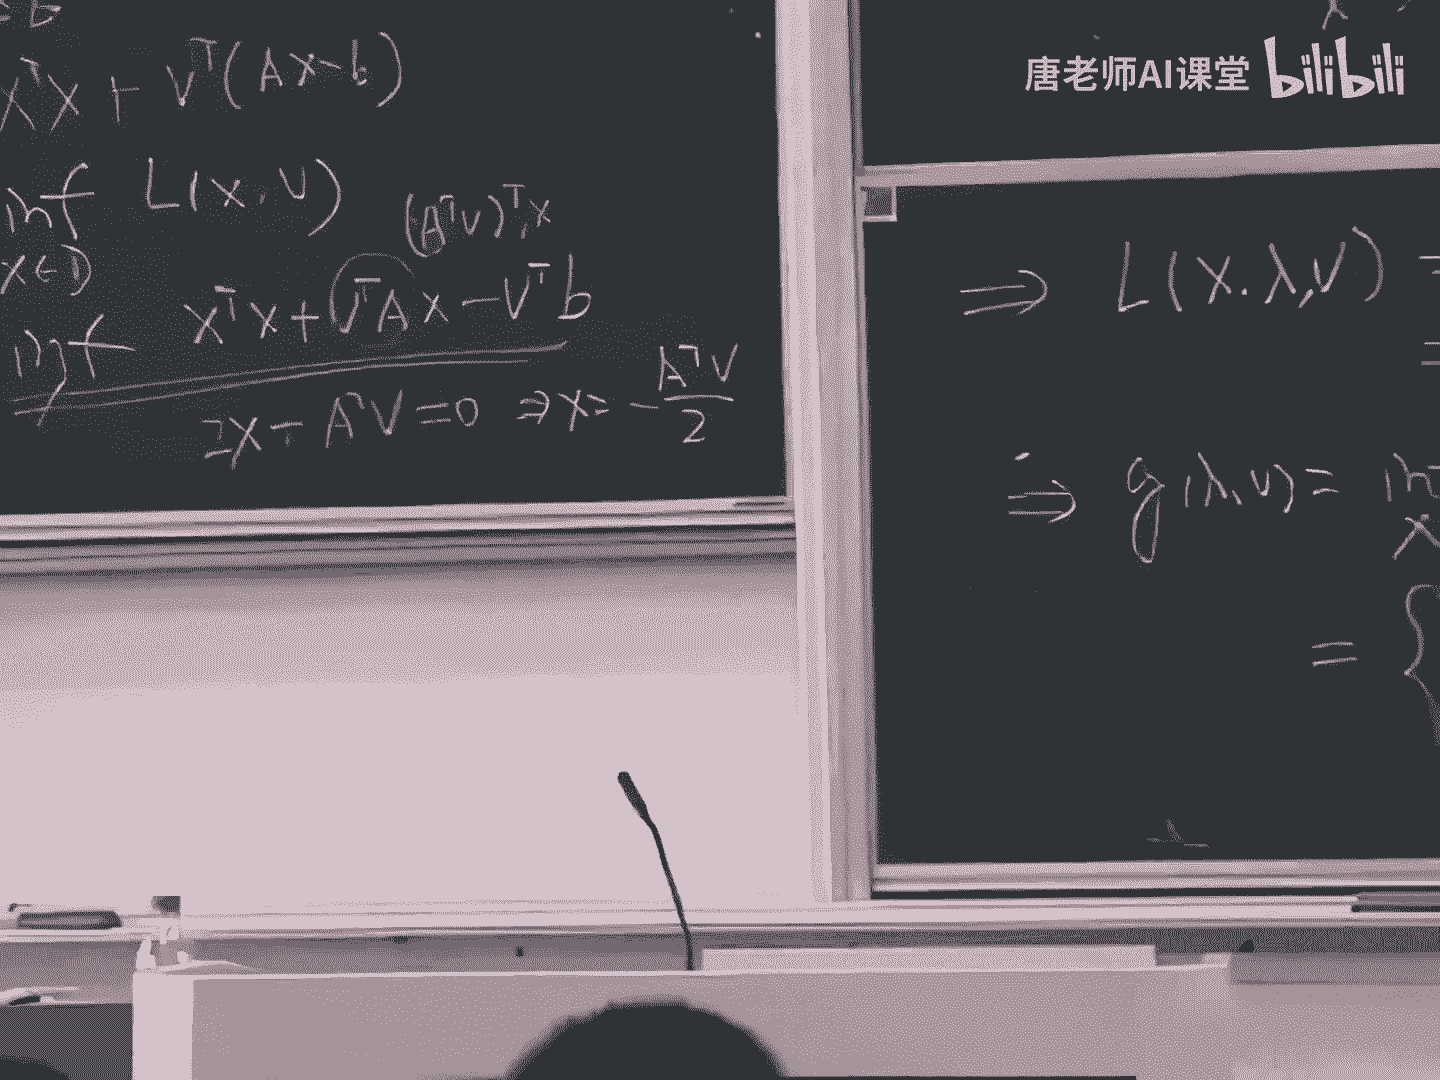 = b
x^T x + v^T (Ax-b)
inf L(x, v)
x∈D
(A^T v)^T x
inf x^T x + v^T A x - v^T b
2x + A^T v = 0 ⇒ x = - A^T v / 2
唐老师AI课堂 bilibili
⇒ L(x, λ, v) =
=
⇒ g(λ, v) = in
x
= {